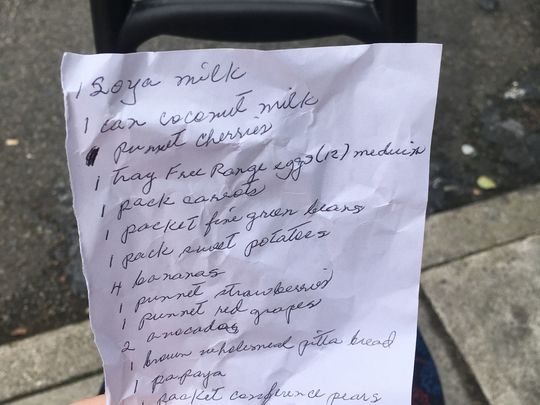 1 Soya milk
1 can coconut milk
punnet cherries
1 tray Free Range eggs (12) medium
1 pack carrots
1 packet fine green beans
1 pack sweet potatoes
4 bananas
1 punnet strawberries
1 punnet red grapes
2 avocados
1 brown wholemeal pitta bread
1 papaya
1 packet conference pears